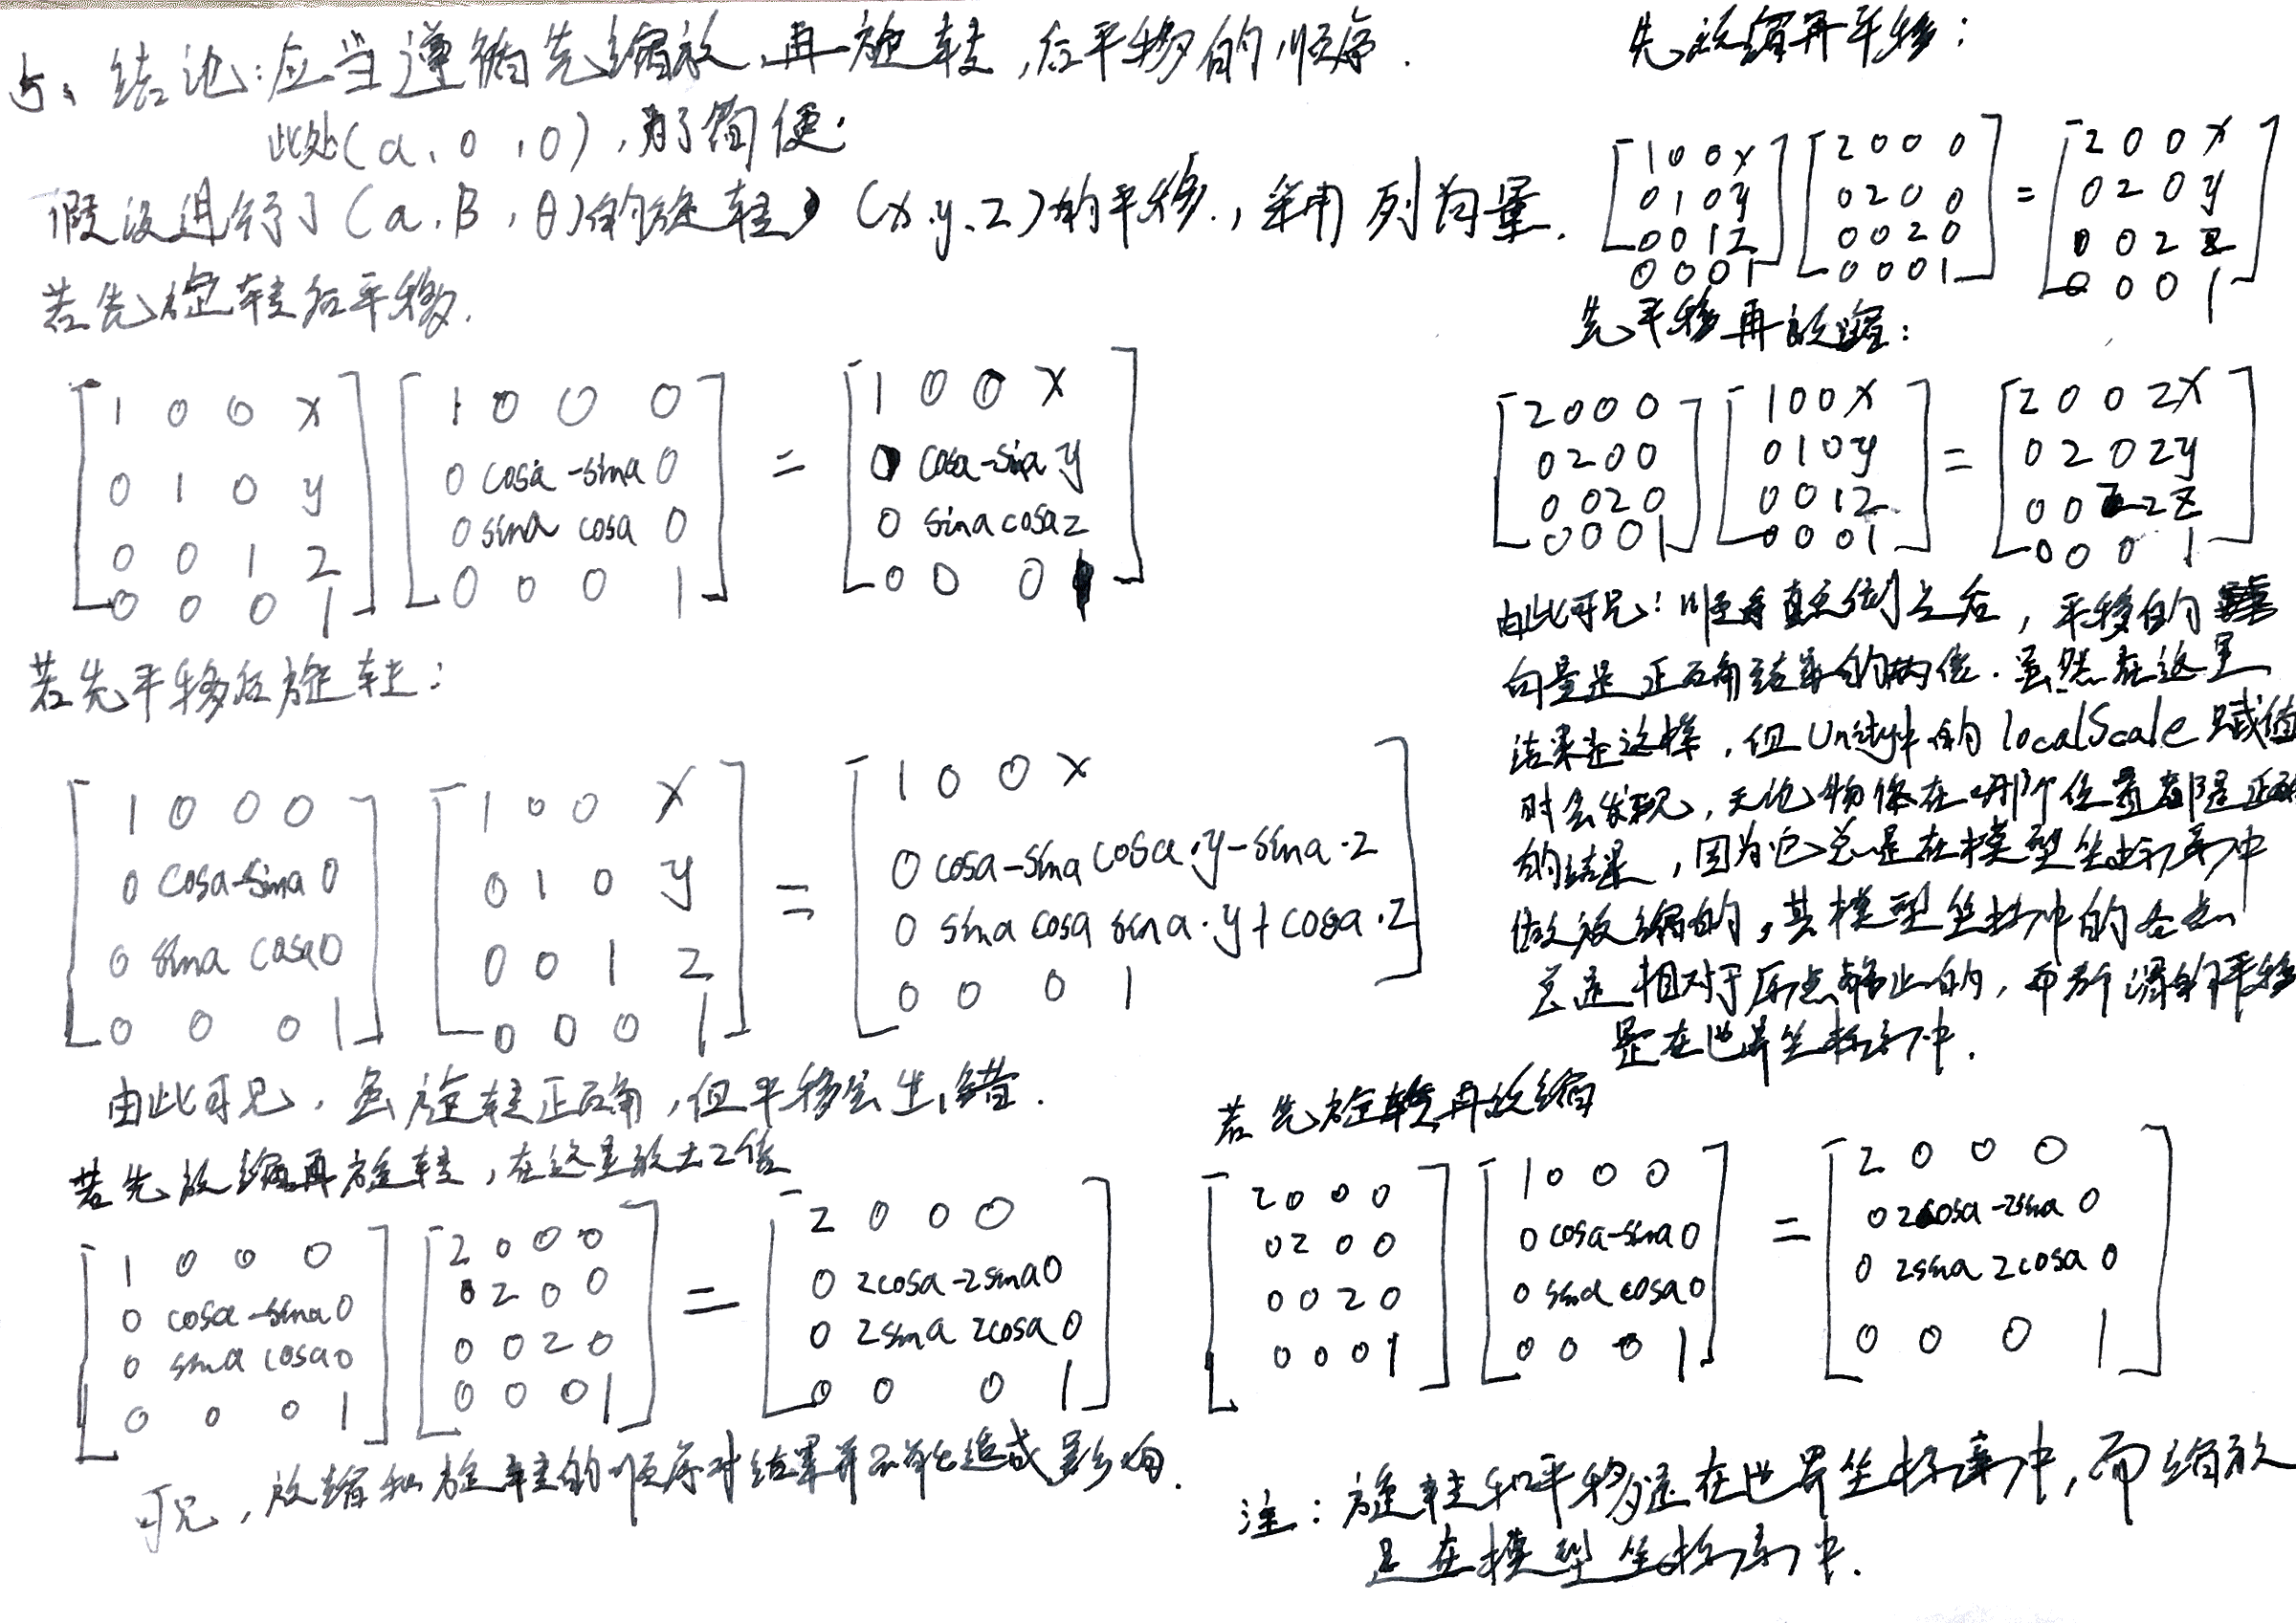 5、结论:应当遵循先缩放,再旋转,后平移的顺序.
此处(a,0,0),为了简便:
假设进行了(a,B,θ)的旋转,(x,y,z)的平移.,采用列向量.
若先旋转后平移.
[1 0 0 x] [1 0 0 0] [1 0 0 x]
[0 1 0 y] [0 cosa -sina 0] = [0 cosa -sina y]
[0 0 1 z] [0 sina cosa 0] [0 sina cosa z]
[0 0 0 1] [0 0 0 1] [0 0 0 1]
若先平移后旋转:
[1 0 0 0] [1 0 0 x] [1 0 0 x]
[0 cosa -sina 0] [0 1 0 y] = [0 cosa -sina cosa·y-sina·z]
[0 sina cosa 0] [0 0 1 z] [0 sina cosa sina·y+cosa·z]
[0 0 0 1] [0 0 0 1] [0 0 0 1]
由此可见,虽旋转正确,但平移会出错.
若先放缩再旋转,在这里放大2倍
[1 0 0 0] [2 0 0 0] [2 0 0 0]
[0 cosa -sina 0] [0 2 0 0] = [0 2cosa -2sina 0]
[0 sina cosa 0] [0 0 2 0] [0 2sina 2cosa 0]
[0 0 0 1] [0 0 0 1] [0 0 0 1]
可见,放缩和旋转的顺序对结果并不会造成影响.
先放缩再平移:
[1 0 0 x] [2 0 0 0] [2 0 0 x]
[0 1 0 y] [0 2 0 0] = [0 2 0 y]
[0 0 1 z] [0 0 2 0] [0 0 2 z]
[0 0 0 1] [0 0 0 1] [0 0 0 1]
先平移再放缩:
[2 0 0 0] [1 0 0 x] [2 0 0 2x]
[0 2 0 0] [0 1 0 y] = [0 2 0 2y]
[0 0 2 0] [0 0 1 z] [0 0 2 2z]
[0 0 0 1] [0 0 0 1] [0 0 0 1]
由此可见:顺序颠倒之后,平移的
向量是正确结果的两倍.虽然在这里
结果是这样,但Unity中的localScale赋值
时会发现,无论物体在哪个位置都是正确
的结果,因为它总是在模型坐标系中
做放缩的,其模型坐标中的各点
总是相对于原点静止的,而所谓的平移
是在世界坐标系中.
若先旋转再放缩
[2 0 0 0] [1 0 0 0] [2 0 0 0]
[0 2 0 0] [0 cosa -sina 0] = [0 2cosa -2sina 0]
[0 0 2 0] [0 sina cosa 0] [0 2sina 2cosa 0]
[0 0 0 1] [0 0 0 1] [0 0 0 1]
注:旋转和平移是在世界坐标系中,而缩放
是在模型坐标系中.